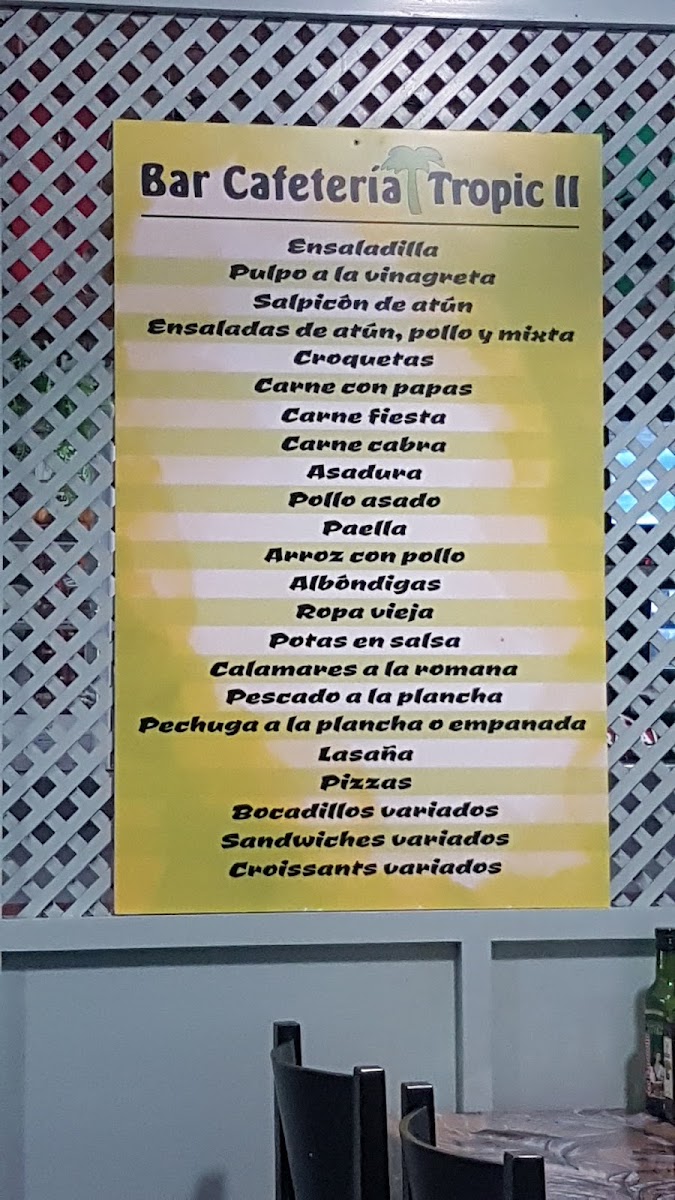 Bar Cafetería Tropic II
Ensaladilla
Pulpo a la vinagreta
Salpicôn de atún
Ensaladas de atún, pollo y mixta
Croquetas
Carne con papas
Carne fiesta
Carne cabra
Asadura
Pollo asado
Paella
Arroz con pollo
Albôndigas
Ropa vieja
Potas en salsa
Calamares a la romana
Pescado a la plancha
Pechuga a la plancha o empanada
Lasaña
Pizzas
Bocadillos variados
Sandwiches variados
Croissants variados